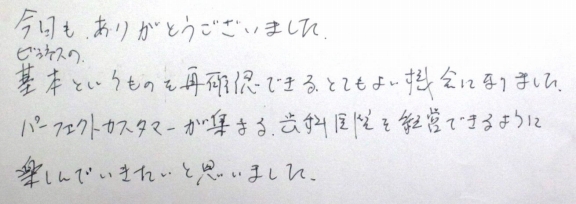 今回も、ありがとうございました。
ビジネスの、
基本というものを再確認できる、とてもよい機会になりました。
パーフェクトカスタマーが集まる、歯科医院を経営できるように
楽しんでいきたいと思いました。